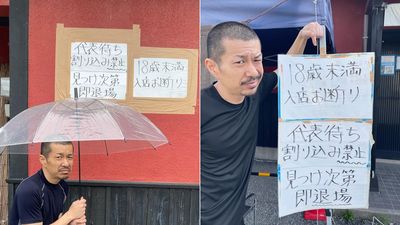 代表待ち
割り込み禁止
見つけ次第
即退場
18歳未満
入店お断り
18歳未満
入店お断り
代表待ち
割り込み禁止
見つけ次第
即退場